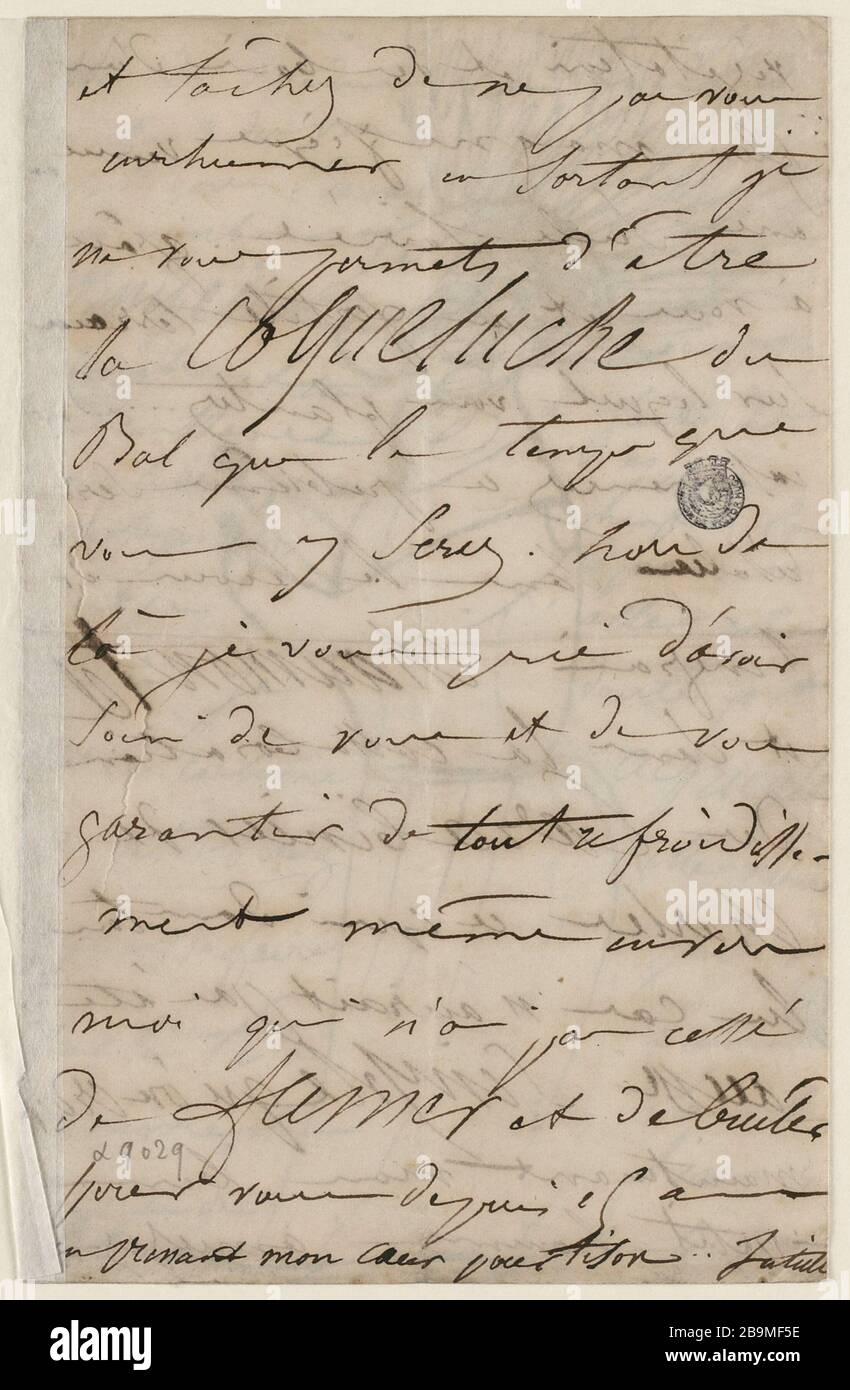 et tâchez de ne pas vous
enrhumer en sortant je
ne vous permets d'être
la Coqueluche du
Bal que le temps que
vous y serez. hors de
là je vous prie d'avoir
soin de vous et de vous
garantir de tout refroidisse-
ment même envers
moi qui n'a pas cessé
de fumer et de brûler
pour vous depuis ans
en prenant mon cœur pour tison .. Juliette
α 9029
alamy
Image ID: 2B9MF5E
www.alamy.com